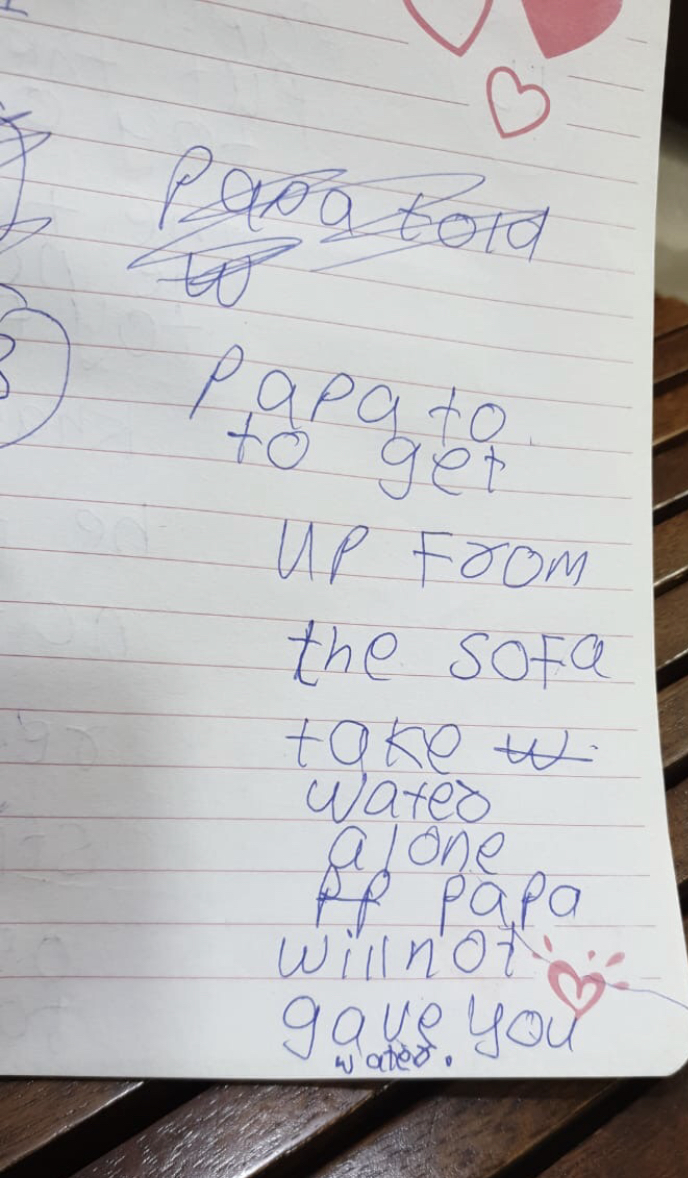 Papa told
w
3
Papa to
to get
UP From
the sofa
take w
water
alone
PP papa
will not
gave you
water.